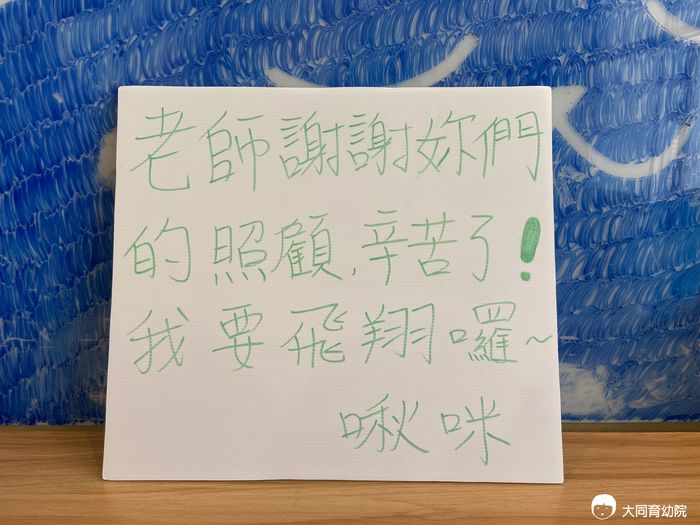 老師謝謝妳們
的照顧,辛苦了!
我要飛翔囉~
啾咪
大同育幼院